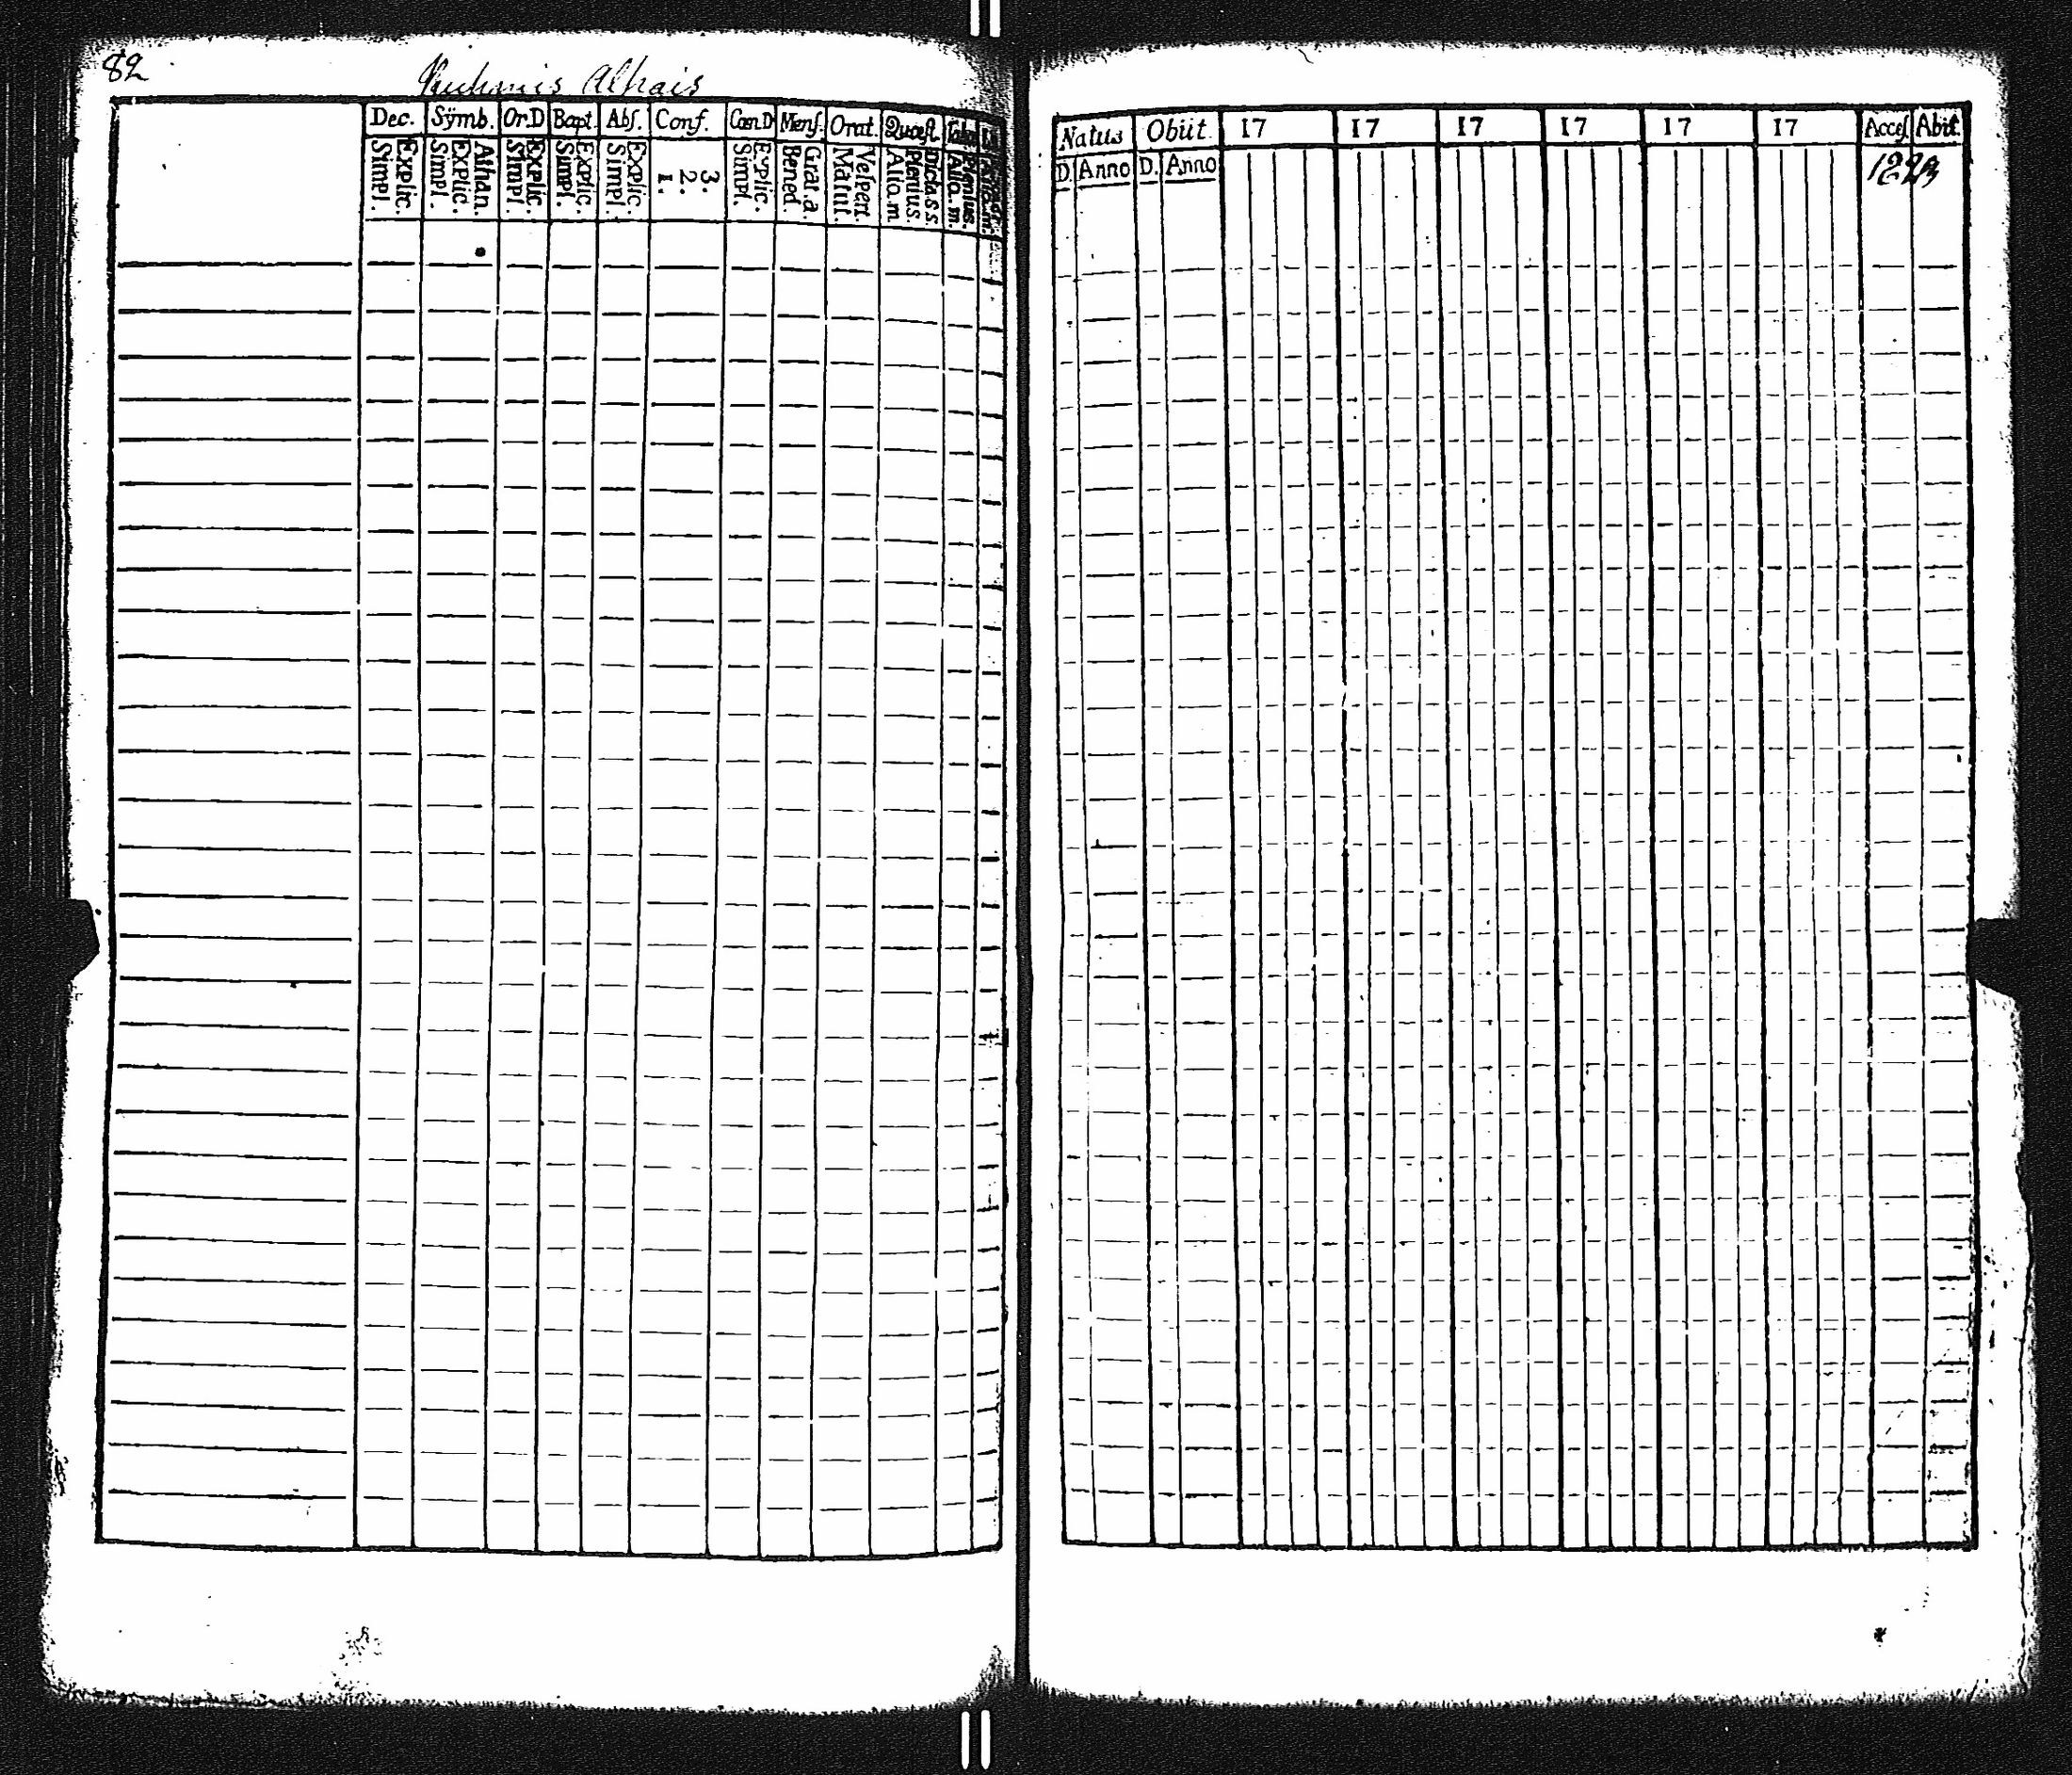 82
Dec. Sÿmb. Or.D Bapt. Abſ. Conf. Cœn.D Menſ. Orat. Quæſt.
Explic. Simpl. Athan. Explic. Simpl. Explic. Simpl. Explic. Simpl. Explic. Simpl. 3. 2. 1. Explic. Simpl. Grat. a. Bened. Veſpert. Matut. Dicta S S. Plenius. Aliq. m. Plenius. Aliq. m.
Natus Obiit 17 17 17 17 17 17 Acceſ. Abit.
D. Anno D. Anno